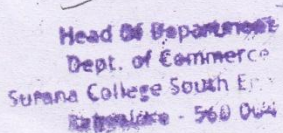 Head Of Department
Dept. of Commerce
Surana College South
Bangalore - 560 004